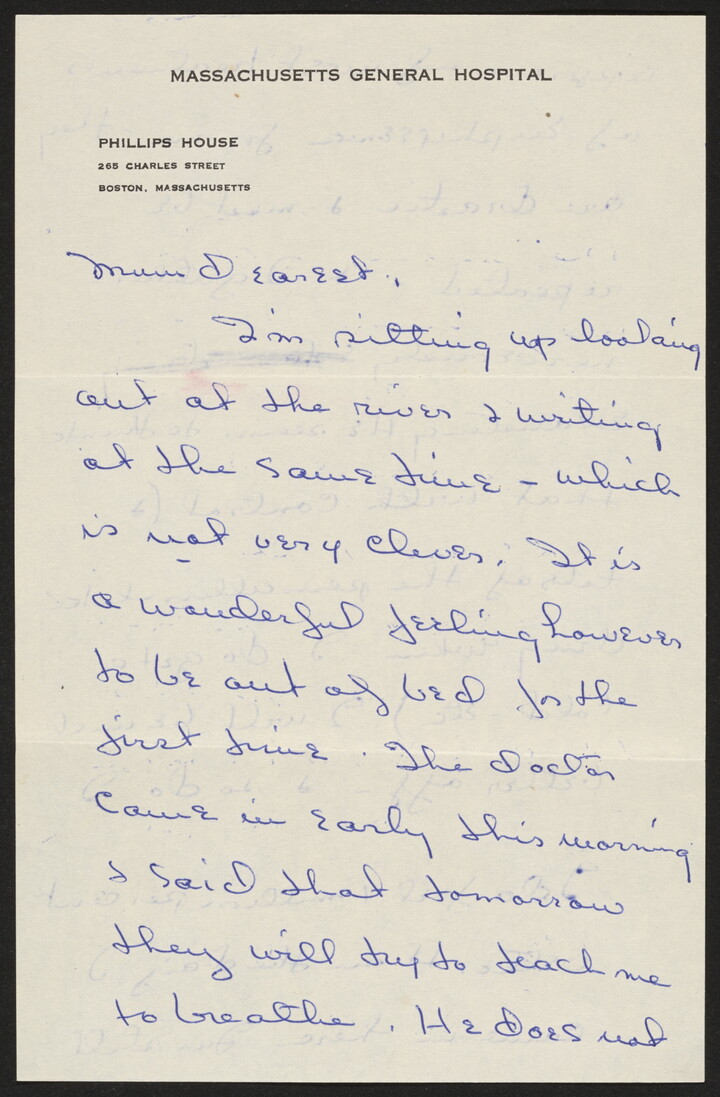 MASSACHUSETTS GENERAL HOSPITAL
PHILLIPS HOUSE
265 CHARLES STREET
BOSTON, MASSACHUSETTS
Mum Dearest,
I'm sitting up looking
out at the river & writing
at the same time – which
is not very clever. It is
a wonderful feeling however
to be out of bed for the
first time. The doctor
came in early this morning
& said that tomorrow
they will try to teach me
to breathe. He does not